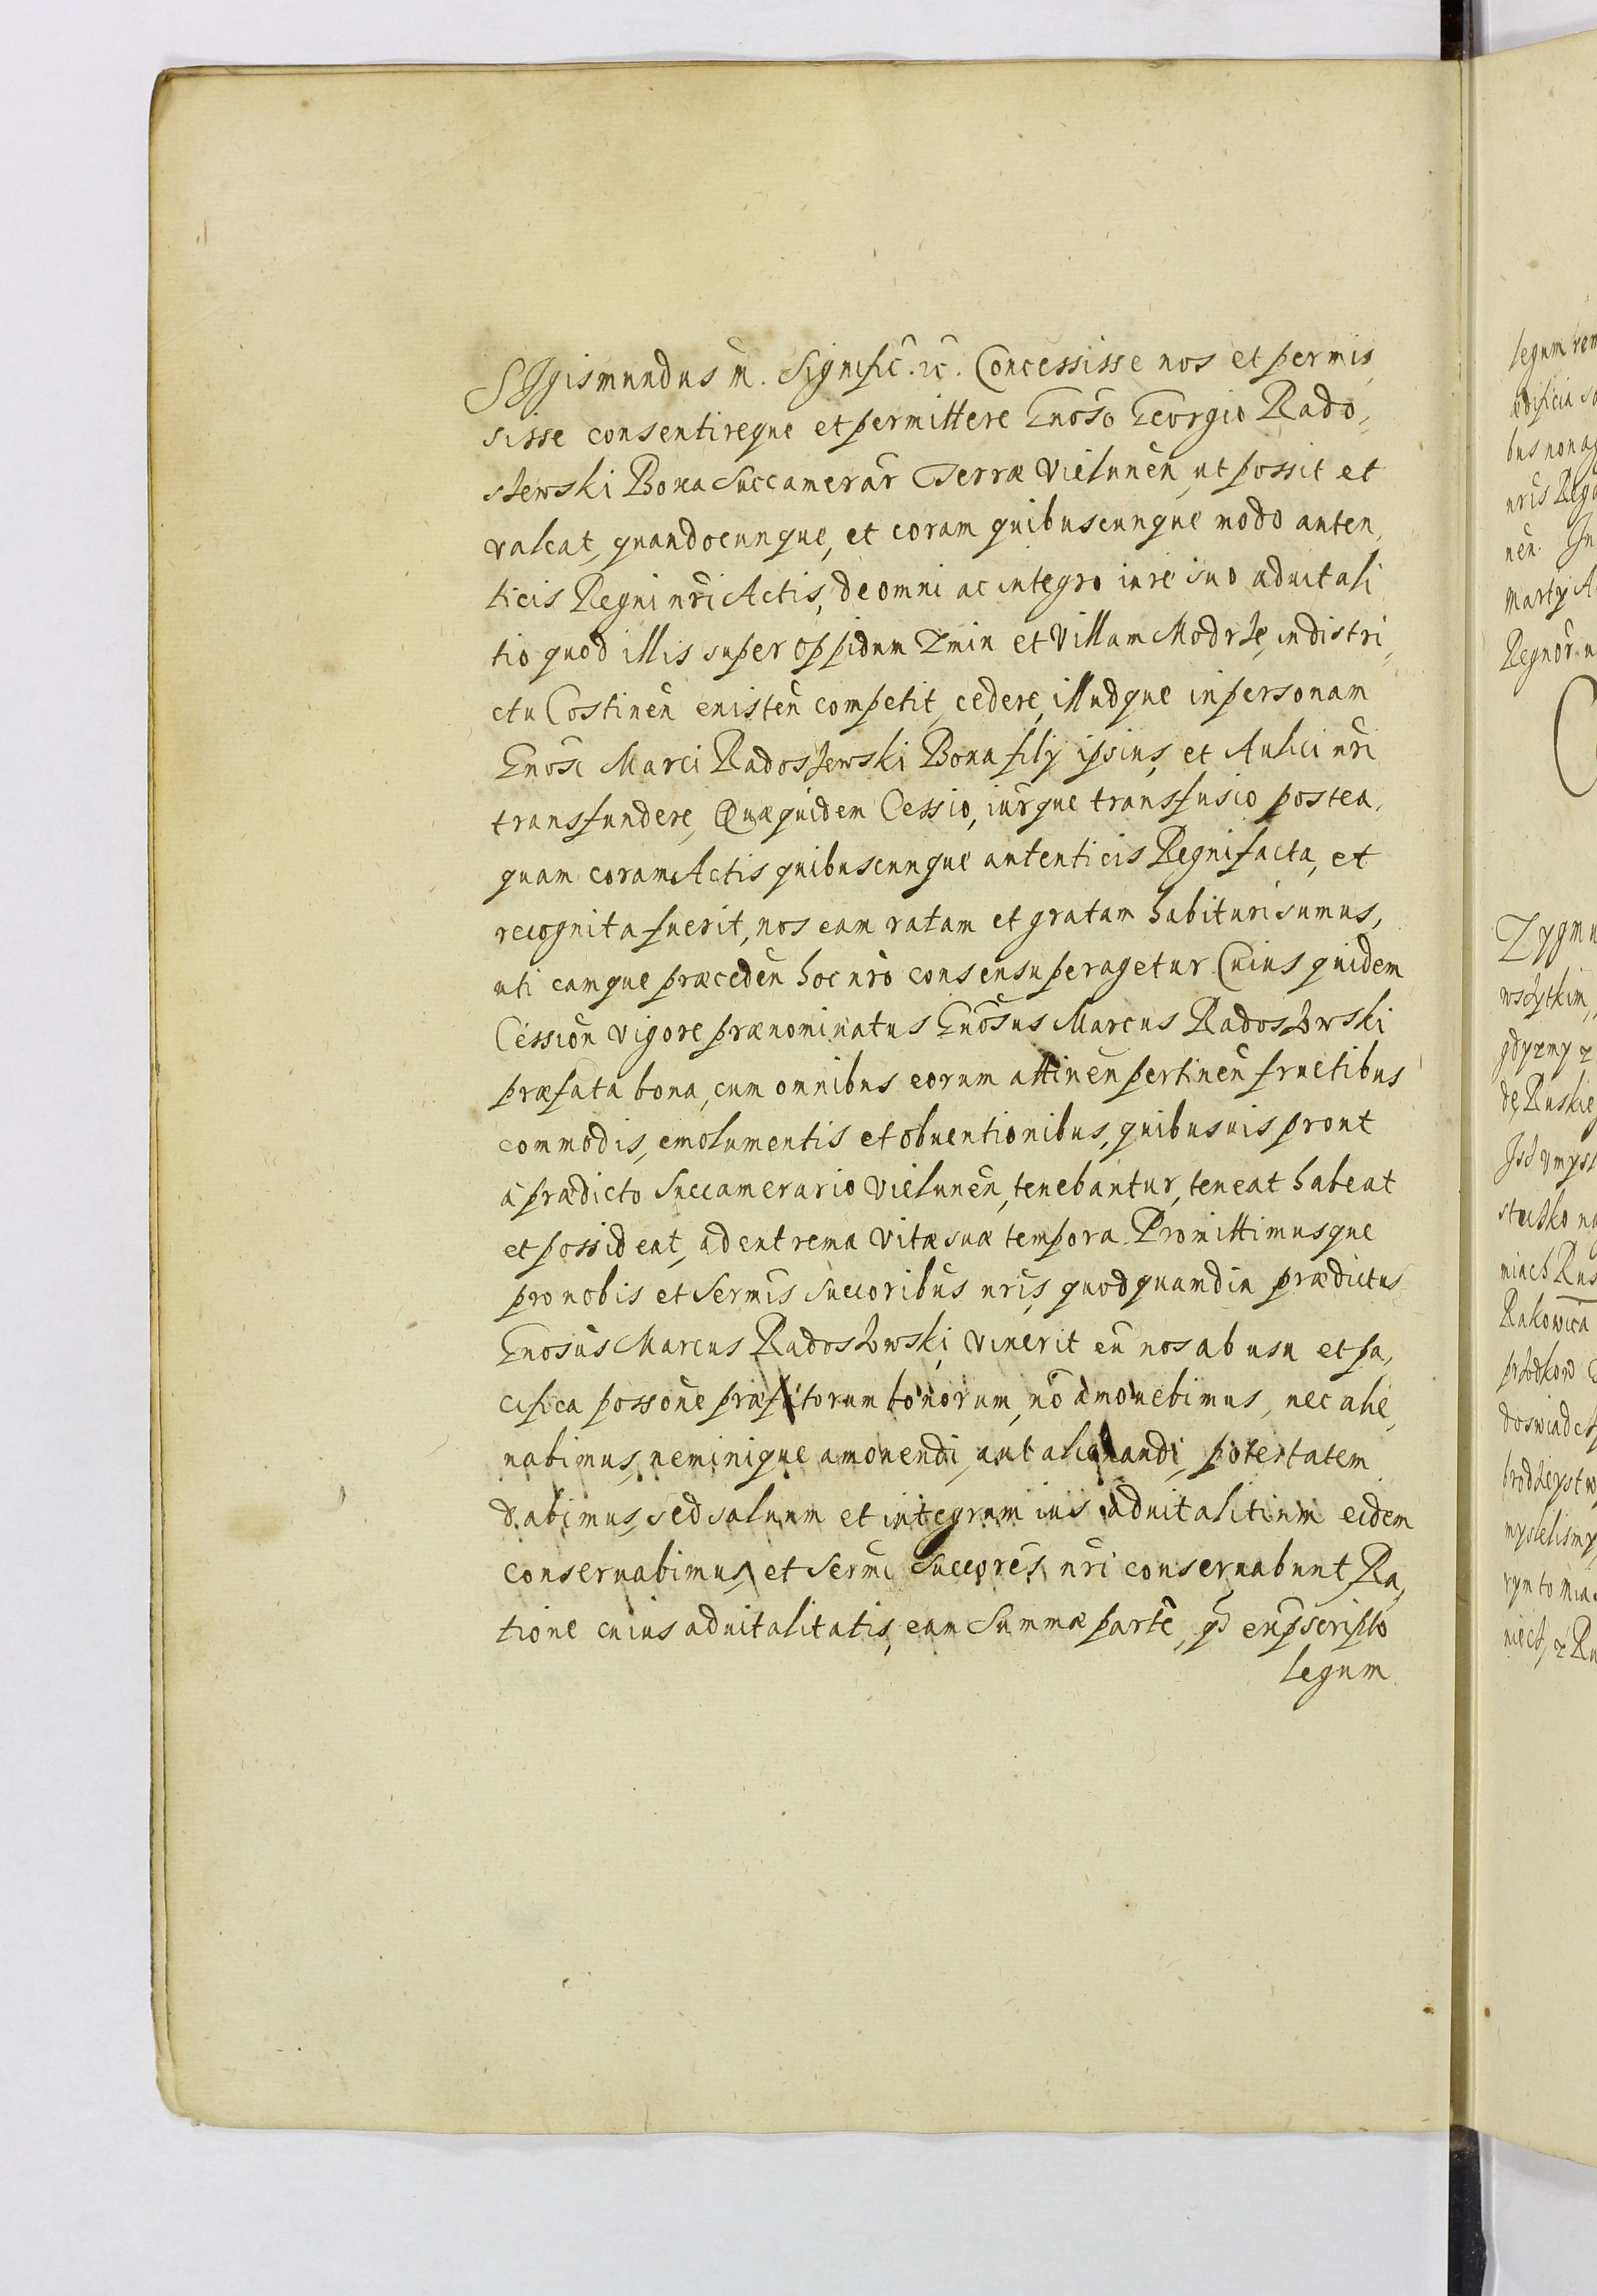 SIgismundus m. Signific̄. ꝛc̄. Concessisse nos et permis,
sisse consentireque et permittere Gnōso Georgio Rado,,
szewski Boxa Succamerar̄ Terræ Vielunēn, ut possit et
valeat, quandocunque, et coram quibuscunque modo auten,
ticis Regni nr̄i Actis, de omni ac integro iure suo aduitali
tio quod illis super oppidum Zmin et Villam Modrze, in distri,,
ctu Costinēn existēn competit, cedere, illudque in personam
Gnōsi Marci Radoszewski Boxa filÿ ipsius, et Aulici nr̄i
transfundere, Quæ quidem Cessio, iurq̄ue transfusio postea,
quam coram Actis quibuscunque autenticis Regni facta, et
recognita fuerit, nos eam ratam et gratam habituri sumus,
uti eamque præcedēn hoc nr̄o consensu peragetur Cuius quidem
Cessiōn vigore prænominatus Gnōsus Marcus Radoszowski
præfata bona, cum omnibus eorum attinēn pertinēn fructibus
commodis, emolumentis et obuentionibus, quibusuis prout
à prædicto Succamerario Vielunēn, tenebantur, teneat habeat
et possideat, ad extrema vitæ suæ tempora. Promittimusque
pro nobis et Sermīs Succoribus nrīs, quod quamdiu prædictus
Gnosūs Marcus Radoszowski, vixerit eū nos ab usu et pa,
cifica possōne præfatorum bonorum, nō amouebimus, nec alie,
nabimus, neminique amouendi, aut alienandi, potestatem
dabimus, sed saluum et integrum ius aduitalitium eidem
conseruabimus, et Sermī Succorēs nr̄i conseruabunt Ra,
tione cuius aduitalitatis, eam Summæ partē, q̄d ex p̄scripto
legum